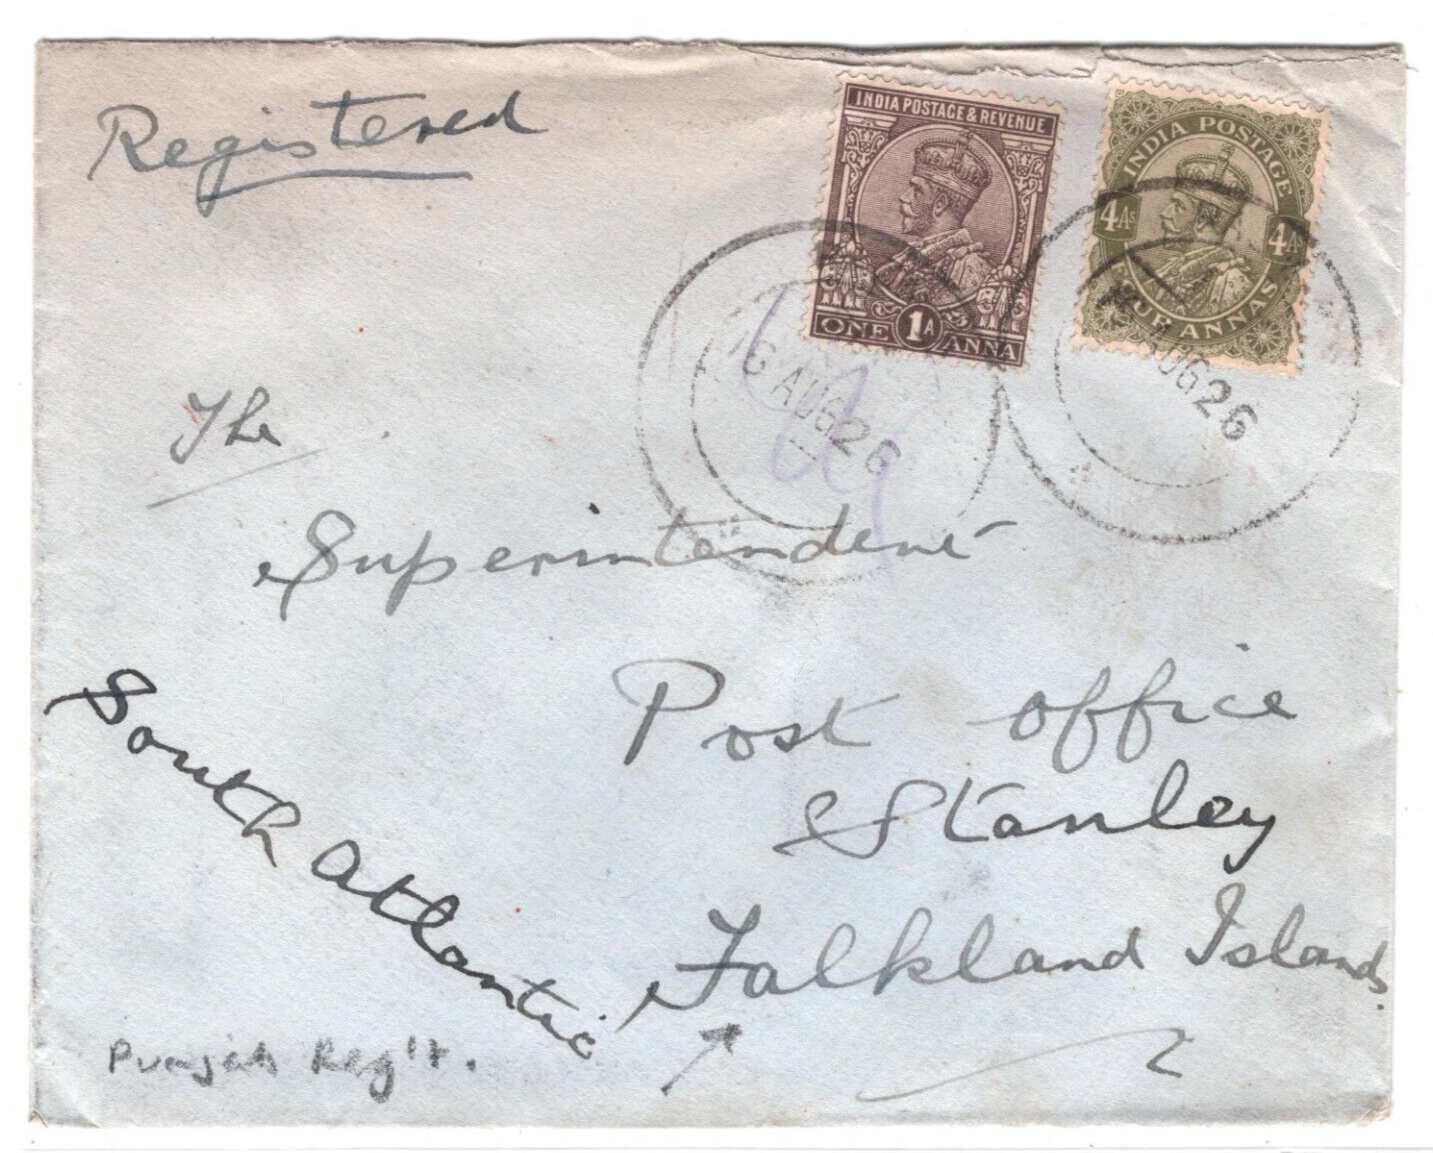 Registered
INDIA POSTAGE & REVENUE
ONE 1A ANNA
INDIA POSTAGE
4As 4As
FOUR ANNAS
16 AUG 26
AUG 26
The
Superintendent
Post Office
Stanley
Falkland Islands.
South Atlantic
Punjab Reg't.